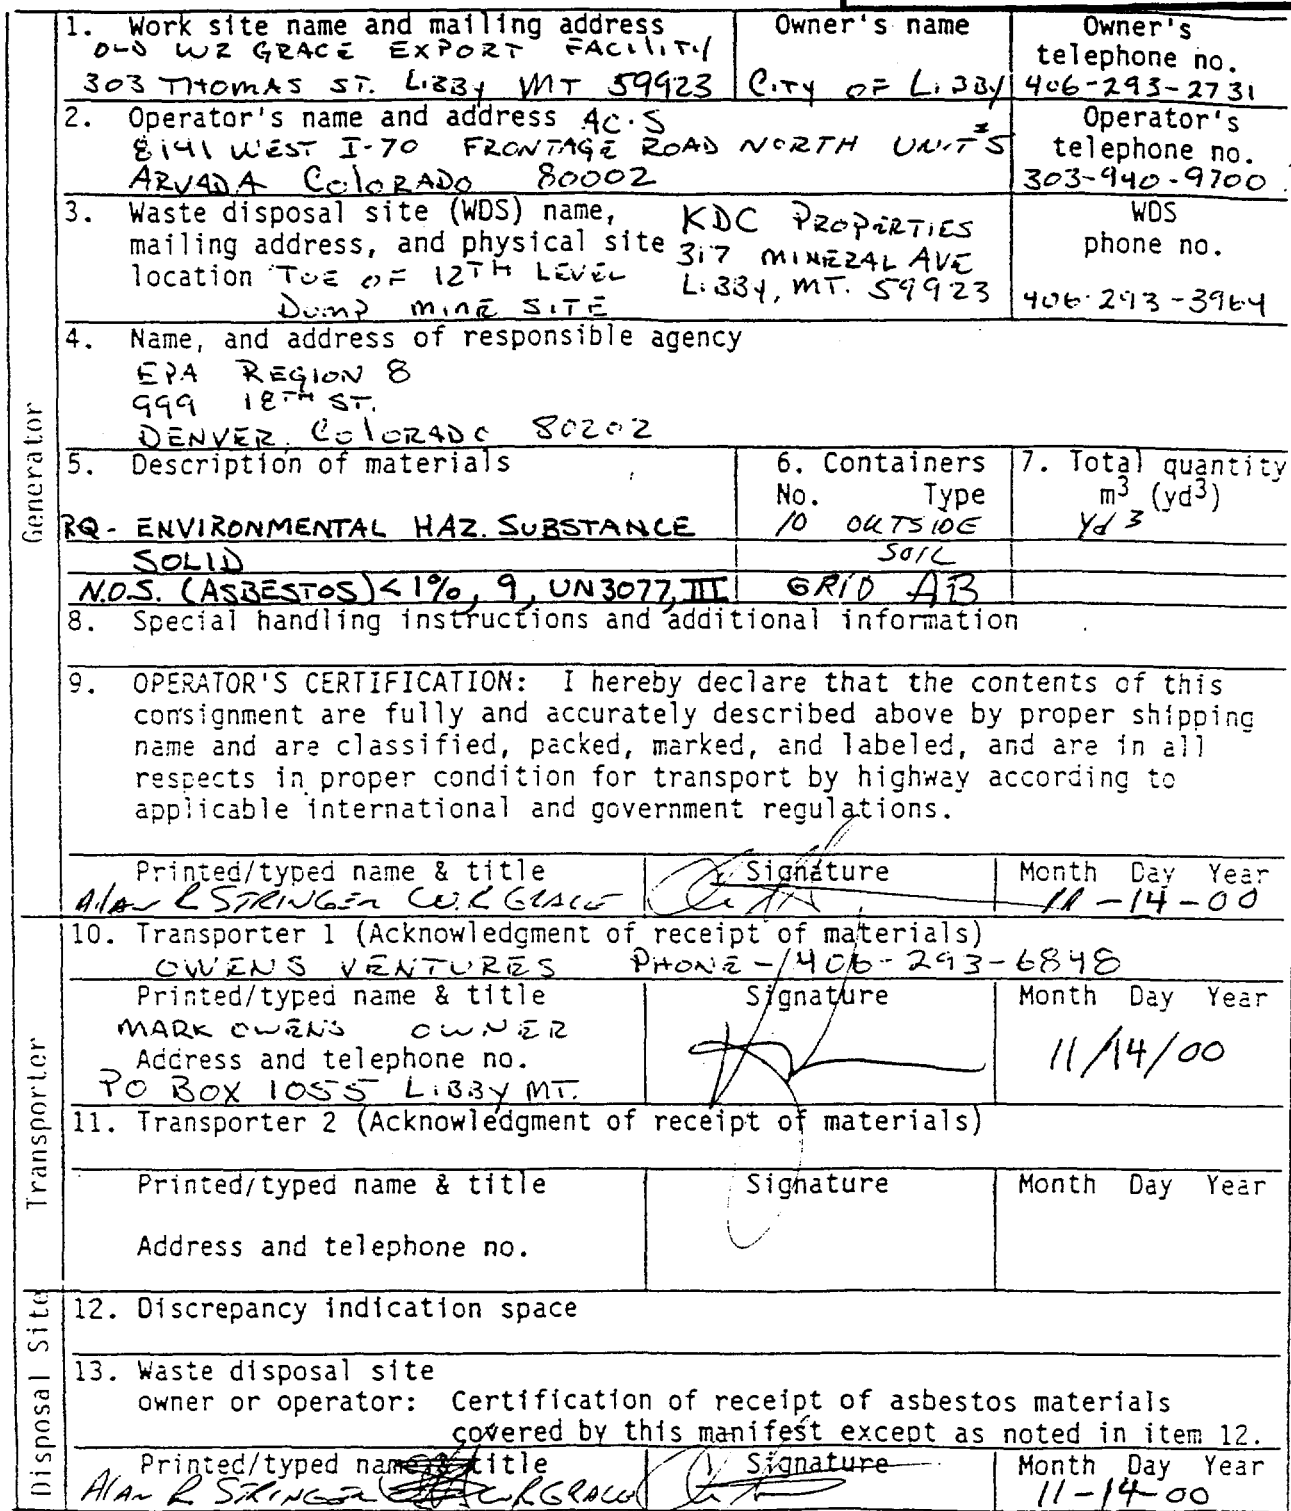 1. Work site name and mailing address
OLD WR GRACE EXPORT FACILITY
303 THOMAS ST. LIBBY MT 59923
Owner's name
CITY OF LIBBY
Owner's
telephone no.
406-293-2731
2. Operator's name and address AC·S
8141 WEST I-70 FRONTAGE ROAD NORTH UNIT #5
ARVADA COLORADO 80002
Operator's
telephone no.
303-940-9700
3. Waste disposal site (WDS) name,
mailing address, and physical site
location TOE OF 12TH LEVEL
DUMP MINE SITE
KDC PROPERTIES
317 MINERAL AVE
LIBBY, MT. 59923
WDS
phone no.
406-293-3964
4. Name, and address of responsible agency
EPA REGION 8
999 18TH ST.
DENVER, COLORADO 80202
Generator
5. Description of materials
RQ - ENVIRONMENTAL HAZ. SUBSTANCE
SOLID
N.O.S. (ASBESTOS) < 1%, 9, UN3077, III
6. Containers
No. Type
10 OUTSIDE
SOIL
GRID AB
7. Total quantity
m3 (yd3)
Yd3
8. Special handling instructions and additional information
9. OPERATOR'S CERTIFICATION: I hereby declare that the contents of this
consignment are fully and accurately described above by proper shipping
name and are classified, packed, marked, and labeled, and are in all
respects in proper condition for transport by highway according to
applicable international and government regulations.
Printed/typed name & title
Alan R STRINGER W.R GRACE
Signature
Month Day Year
11-14-00
Transporter
10. Transporter 1 (Acknowledgment of receipt of materials)
OWENS VENTURES PHONE - 406-293-6848
Printed/typed name & title
MARK OWENS OWNER
Address and telephone no.
PO BOX 1055 LIBBY MT.
Signature
Month Day Year
11/14/00
11. Transporter 2 (Acknowledgment of receipt of materials)
Printed/typed name & title
Address and telephone no.
Signature
Month Day Year
Disposal Site
12. Discrepancy indication space
13. Waste disposal site
owner or operator: Certification of receipt of asbestos materials
covered by this manifest except as noted in item 12.
Printed/typed name & title
Alan R STRINGER W.R GRACE
Signature
Month Day Year
11-14-00